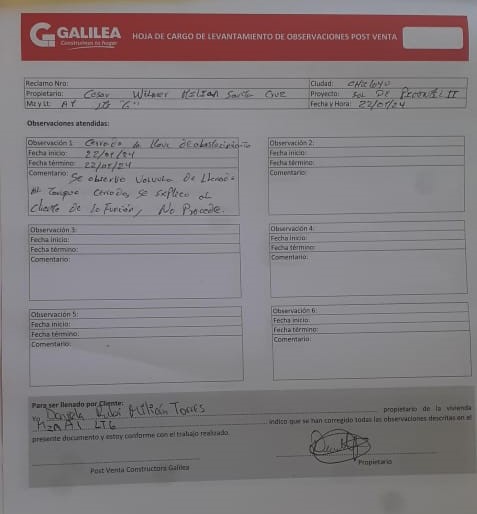 GALILEA
Construimos tu hogar
HOJA DE CARGO DE LEVANTAMIENTO DE OBSERVACIONES POST VENTA
Reclamo Nro:
Ciudad: CHICLAYO
Propietario: Cesar Wilmer Milian Santa Cruz
Proyecto: SOL DE PICONAL II
Mz y Lt: A1 Lt "6"
Fecha y Hora: 22/01/24
Observaciones atendidas:
Observación 1 Cerrado la llave de abastecimiento
Fecha inicio: 22/01/24
Fecha término: 22/01/24
Comentario: Se observo Valvula De Llenado
Al Tanque Cerrada, se explico al
Cliente De la Función, No Procede.
Observación 2:
Fecha inicio:
Fecha término:
Comentario:
Observación 3:
Fecha inicio:
Fecha término:
Comentario:
Observación 4:
Fecha inicio:
Fecha término:
Comentario:
Observación 5:
Fecha inicio:
Fecha término:
Comentario:
Observación 6:
Fecha inicio:
Fecha término:
Comentario:
Para ser llenado por Cliente:
Yo Daniela Rubí Milián Torres propietario de la vivienda
MZA A1 LT6 indico que se han corregido todas las observaciones descritas en el
presente documento y estoy conforme con el trabajo realizado.
Post Venta Constructora Galilea
Propietario